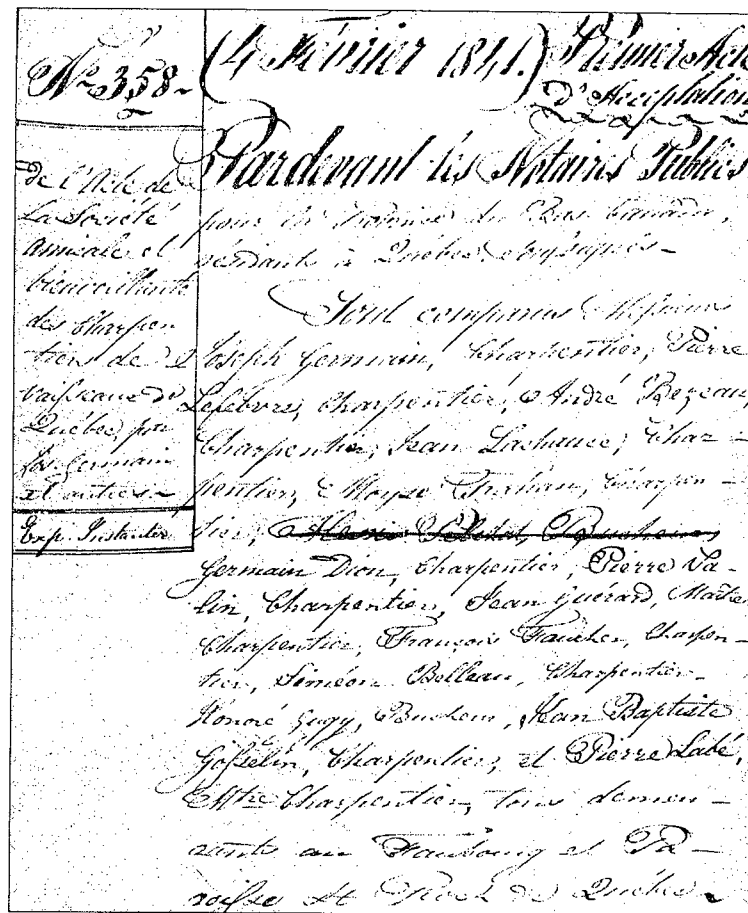 No 358.
de l'Acte de
La Société
amicale et
bienveillante
des Charpen
tiers de
vaisseaux de
Québec, par
Jos. Germain
et autres
Exp. Instanter
(4 Février 1841.) Premier Acte
d'Acceptation
Pardevant les Notaires Publics
pour la Province du Bas Canada,
résidants à Québec, soussignés.
Sont comparus Messieurs
Joseph Germain, Charpentier, Pierre
Lefebvre, Charpentier, André Bezeau,
Charpentier, Jean Lachance, Char-
pentier, Moyse Trahan, Charpen-
tier,
Germain Dion, Charpentier, Pierre Va-
lin, Charpentier, Jean Guérard, Maître
Charpentier, François Faucher, Charpen-
tier, Siméon Belleau, Charpentier
Honoré Gugy, Bucheur, Jean Baptiste
Gosselin, Charpentier, et Pierre Labé,
Mtre Charpentier, tous demeu-
rants au Faubourg et Pa-
roisse St Roch de Québec